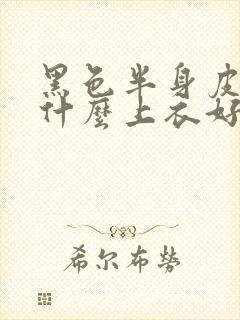 黑色半身皮
什麼上衣好
希尔布勞